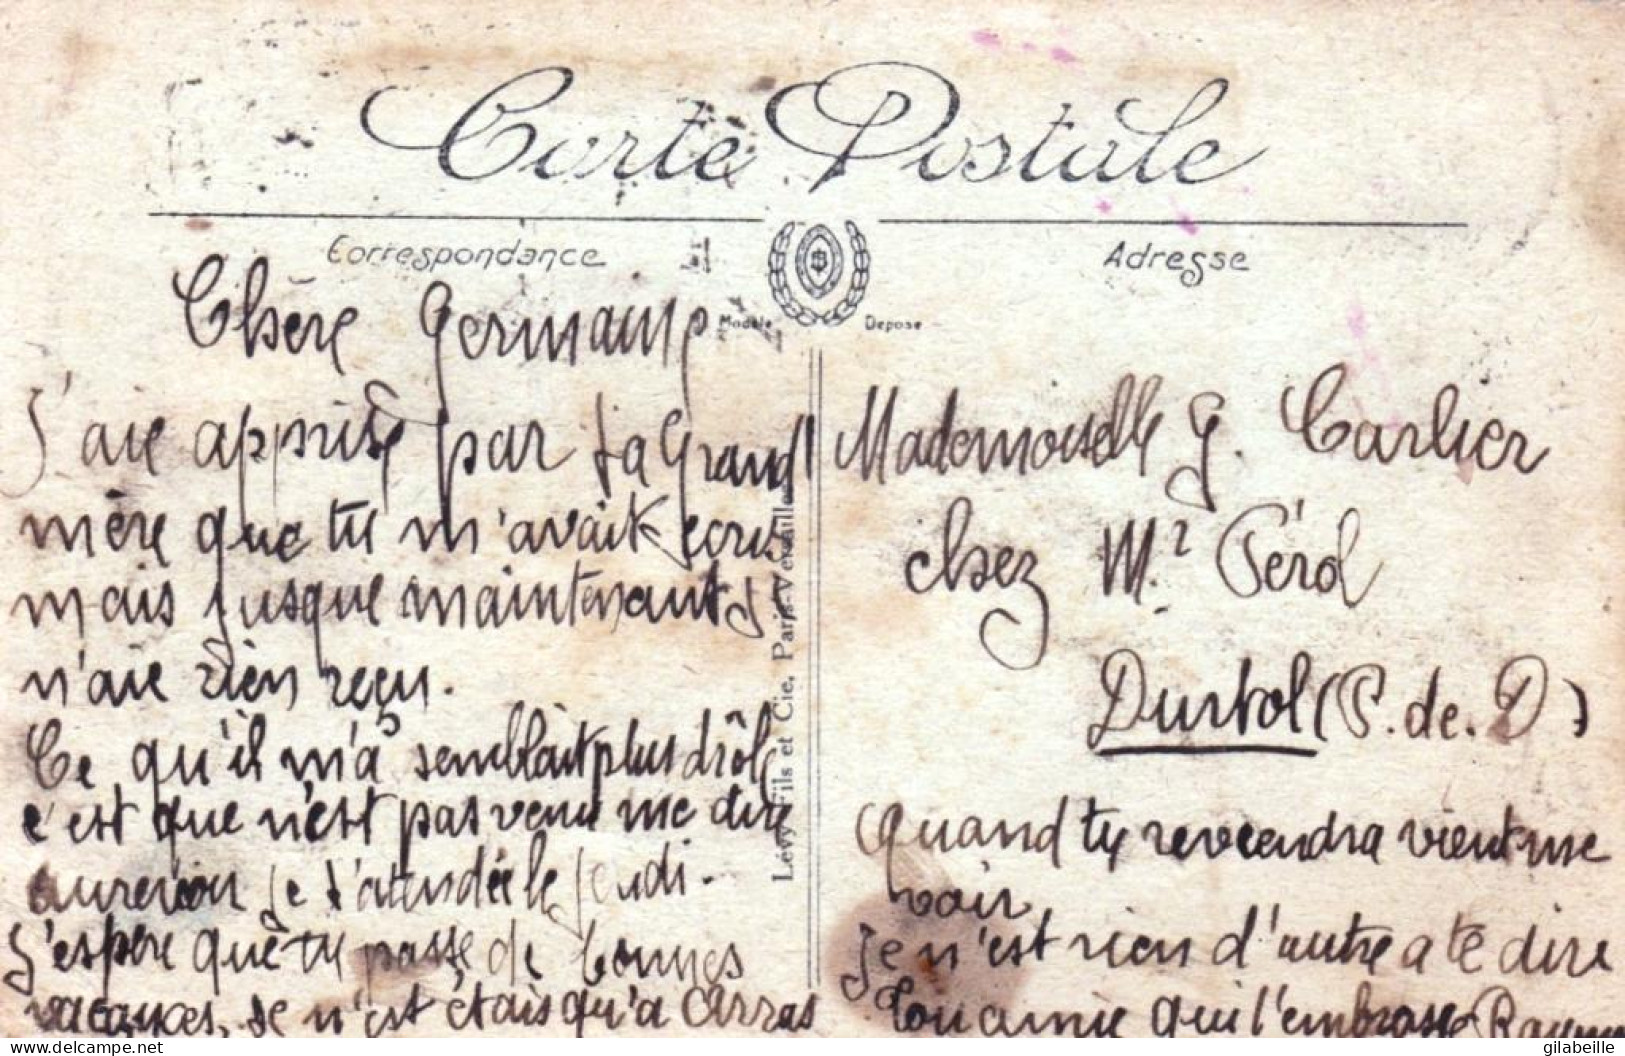 Carte Postale
Correspondance
Adresse
Modèle Déposé
Lévy Fils et Cie, Paris-Versailles
Chère Germaine
J'aie apprise par ta Grand'
mère que tu m'avait écris
mais jusque maintenant je
n'aie rien reçu.
Ce qu'il m'a semblait plus drôle
c'est que n'est pas venu me dire
aurevoir je t'attendée le jeudi.
J'espère que tu passe de bonnes
vacances, Je n'est étais qu'a Arras
Mademoiselle G. Carlier
chez Mr Pérol
Durtol (P. de. D)
Quand tu reveendra vient me
voir
Je n'est rien d'autre a te dire
Ton amie qui t'embrasse